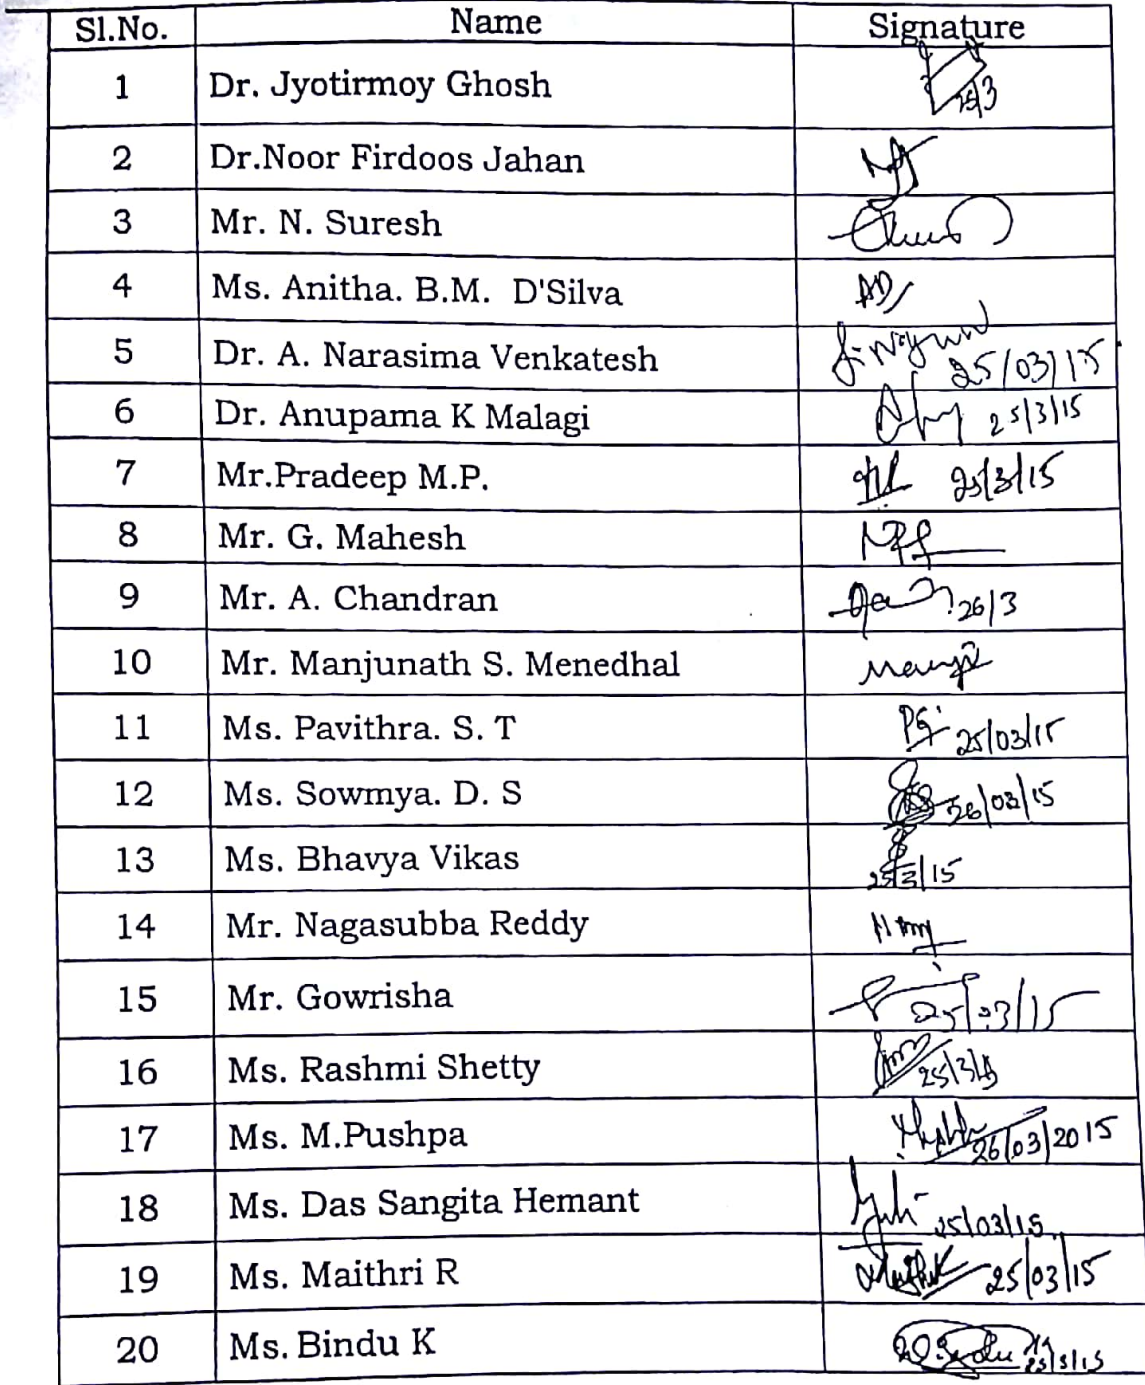 Sl.No. Name Signature
1 Dr. Jyotirmoy Ghosh 25/3
2 Dr.Noor Firdoos Jahan
3 Mr. N. Suresh
4 Ms. Anitha. B.M. D'Silva AD
5 Dr. A. Narasima Venkatesh 25/03/15
6 Dr. Anupama K Malagi 25/3/15
7 Mr.Pradeep M.P. 25/3/15
8 Mr. G. Mahesh
9 Mr. A. Chandran 26/3
10 Mr. Manjunath S. Menedhal
11 Ms. Pavithra. S. T 25/03/15
12 Ms. Sowmya. D. S 26/03/15
13 Ms. Bhavya Vikas 25/3/15
14 Mr. Nagasubba Reddy
15 Mr. Gowrisha 25/03/15
16 Ms. Rashmi Shetty 25/3/15
17 Ms. M.Pushpa 26/03/2015
18 Ms. Das Sangita Hemant 25/03/15
19 Ms. Maithri R 25/03/15
20 Ms. Bindu K 25/3/15